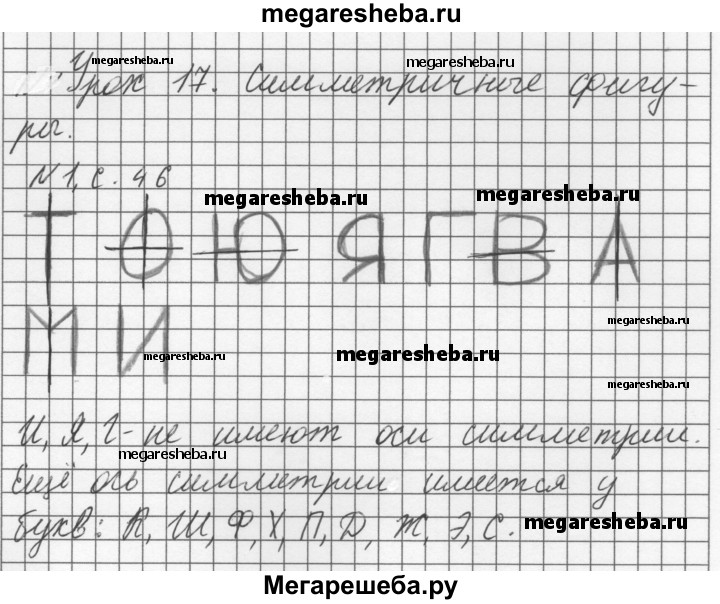 megaresheba.ru
megaresheba.ru megaresheba.ru
Урок 17. Симметричные фигу-
ры.
№1, с. 46
megaresheba.ru megaresheba.ru
Т О Ю Я Г В А
megaresheba.ru
М И
megaresheba.ru megaresheba.ru
megaresheba.ru
И, Я, Г - не имеют оси симметрии.
megaresheba.ru
Ещё ось симметрии имеется у
букв: К, Ш, Ф, Х, П, Д, Ж, Э, С. megaresheba.ru
Мегарешеба.ру